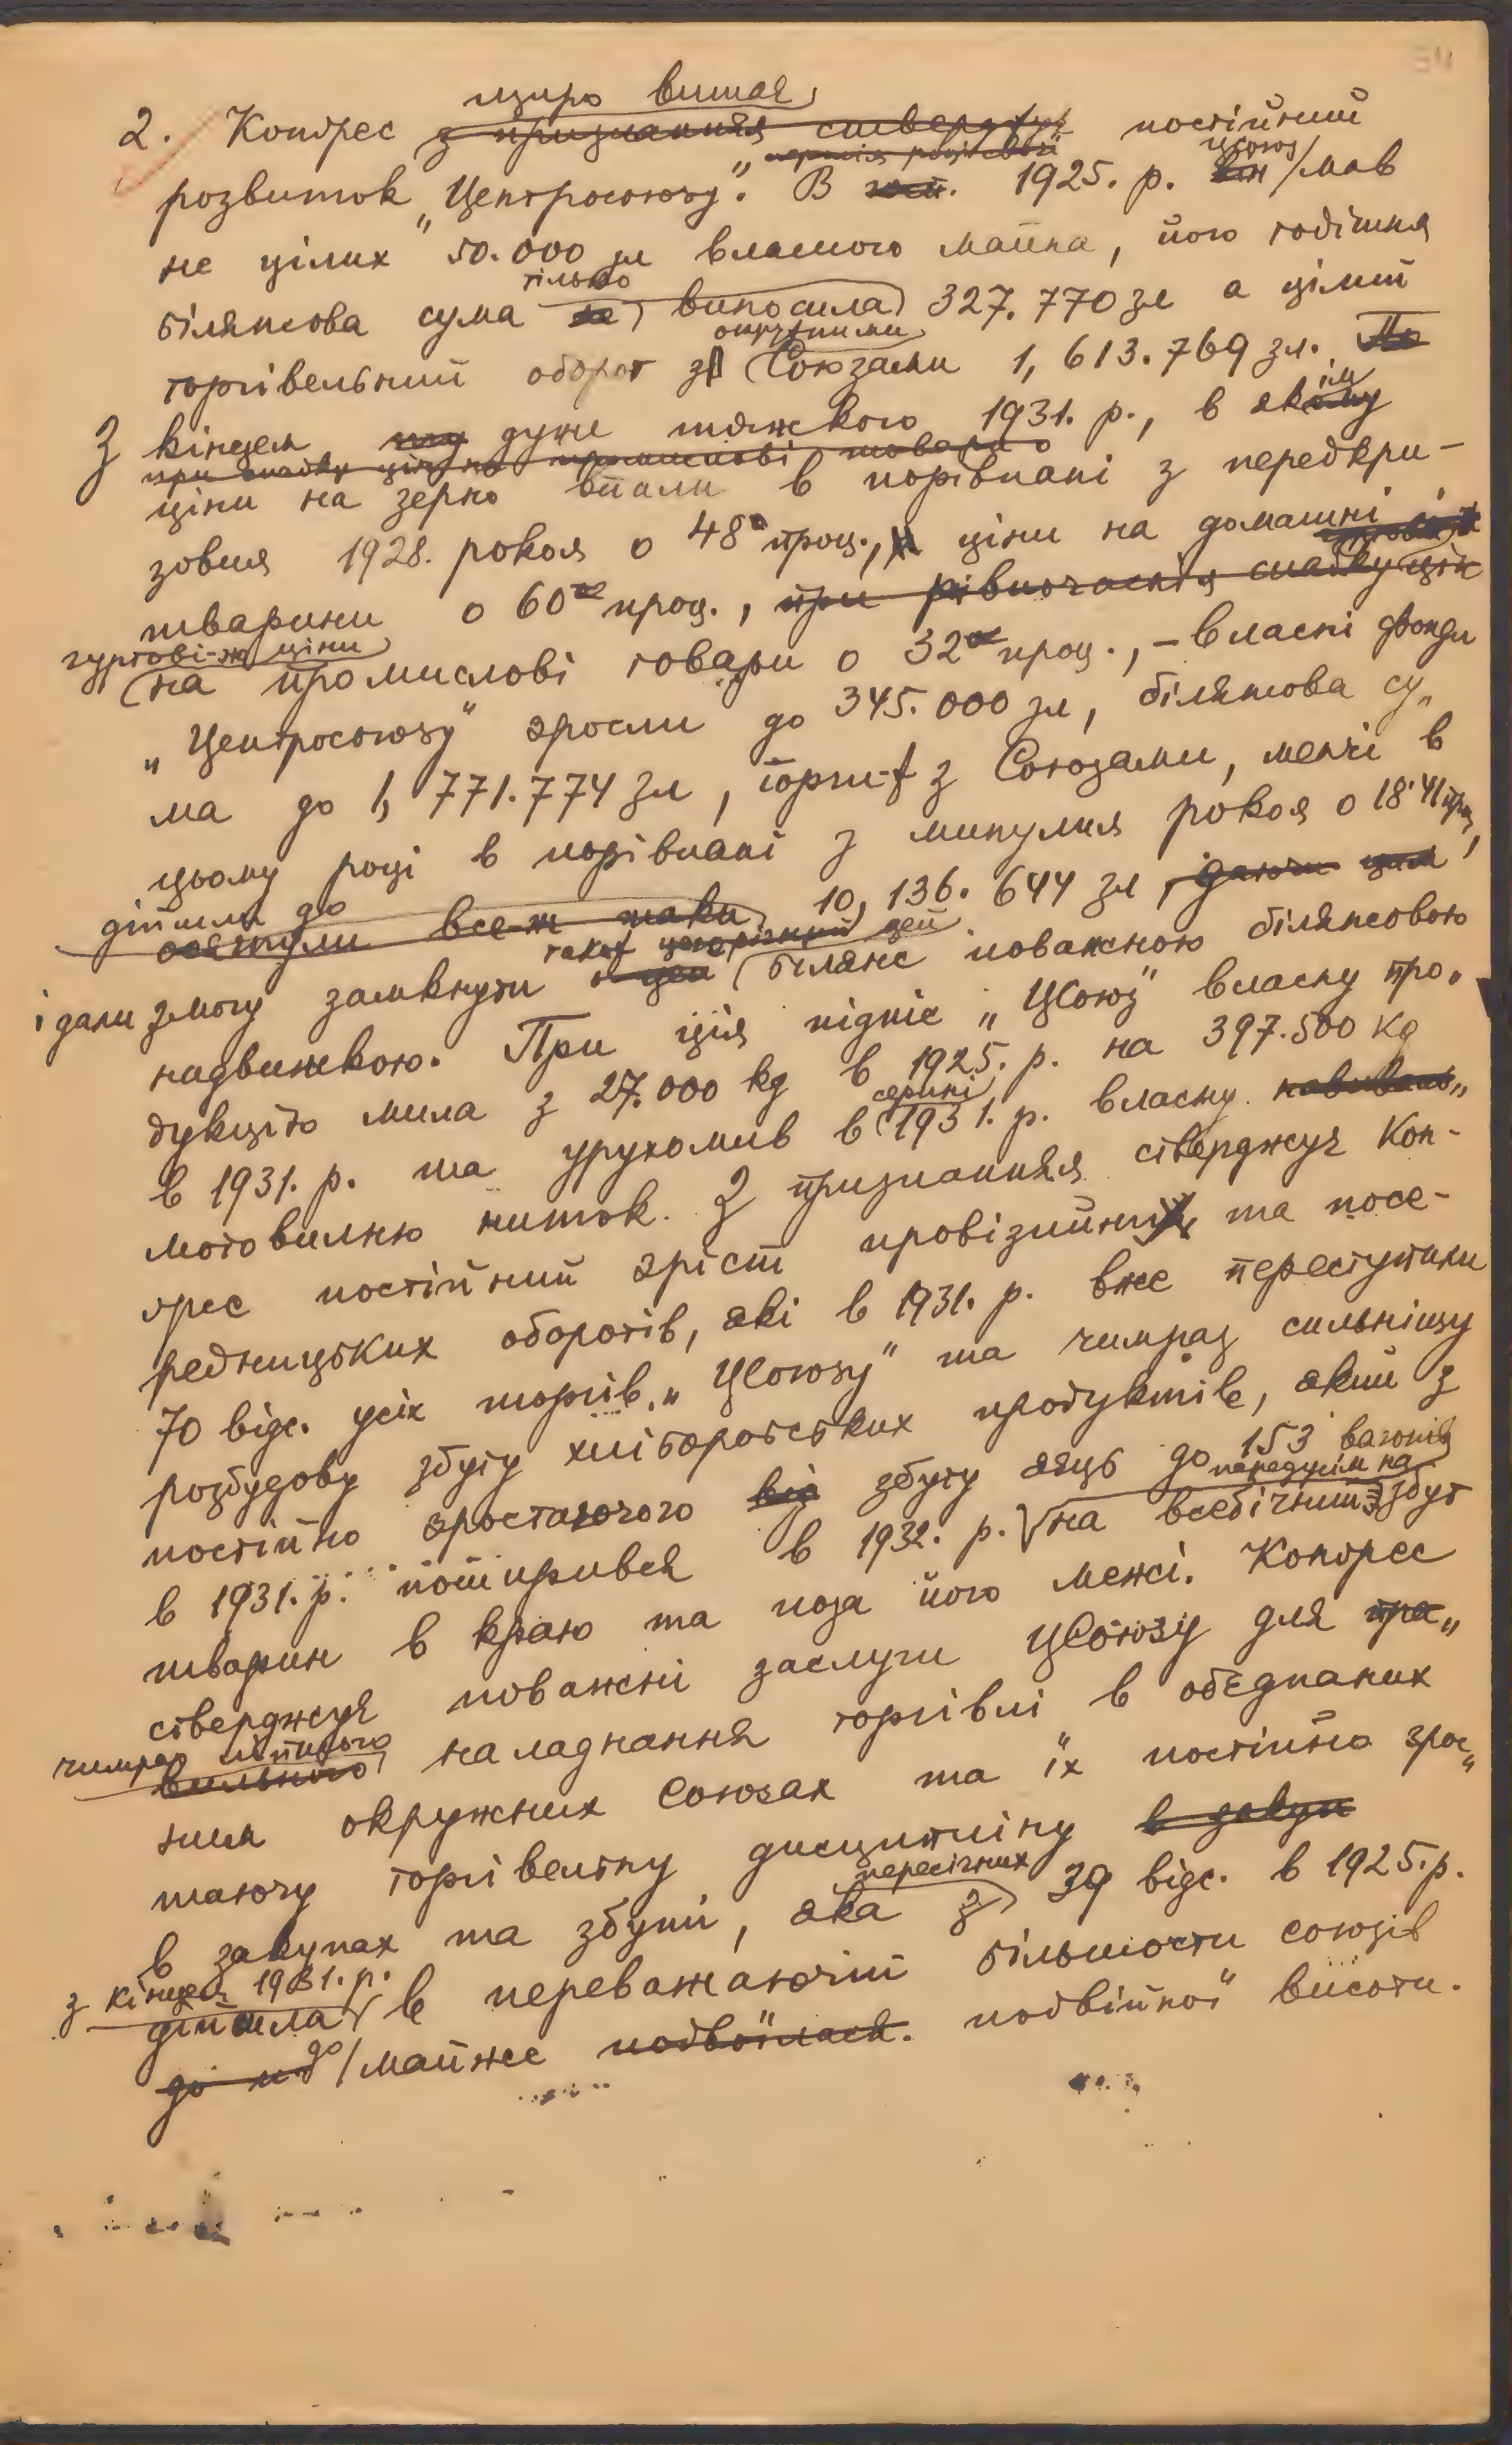 щиро витає
2. Конґрес з признанням стверджує постійний
розвиток „Центросоюзу". В 1925. р. він ЦСоюз мав
не цілих 50.000 зл власного майна, його годішня
білянсова сума тільки виносила 327.770 зл а цілий
торгівельний оборот з окружними Союзами 1,613.769 зл. По
З кінцем дуже тяжкого 1931. р., в якім
при спадку цін на промислові товари о
ціни на зерно впали в порівнані з передкри-
зовим 1928. роком о 48 проц., ціни на домашні
тварини о 60 проц., при рівночаснім спадку цін
гуртові-ж ціни
на промислові товари о 32 проц., – власні фонди
„Центросоюзу" зросли до 345.000 зл, білянсова су„
ма до 1,771.774 зл, торги-ж з Союзами, менчі в
цьому році в порівнані з минулим роком о 18'41 проц,
дійшли до
осягнули все-ж таки 10,136.644 зл, даючи цим
і дали змогу замкнути цей білянс поважною білянсовою
надвижкою. При цім підніс „ЦСоюз" власну про„
дукцію мила з 27.000 kg в 1925. р. на 397.500 kg
в 1931. р. та урухомив в серпні 1931. р. власну навиваль„
мотовильню ниток. З признанням стверджує Кон-
ґрес постійний зріст провізійних та посе-
редницьких оборотів, які в 1931. р. вже переступили
70 відс. усіх торгів „ЦСоюзу" та чимраз сильнішу
розбудову збуту хліборобських продуктів, який з
постійно зростаючого від збуту яєць до 153 вагонів
в 1931. р. поширився в 1932. р. передусім на на всебічний збут
тварин в краю та поза його межі. Конґрес
стверджує поважні заслуги ЦСоюзу для пра„
чимраз ліпшого
вильного наладнання торгівлі в обєднаних
ним окружних Союзах та їх постійно зрос„
таючу торгівельну дисципліну в закуп
в закупах та збуті, яка з пересічних 39 відс. в 1925. р.
з кінцем 1931. р.
дійшла в переважаючій більшости союзів
до майже подвоїлася. подвійної висоти.